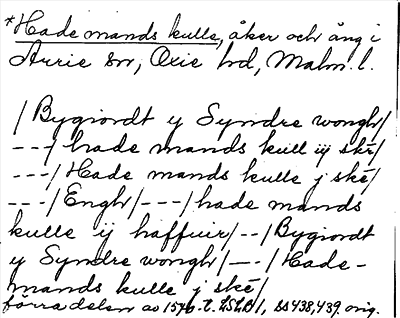 *Hade mands kulle, åker och äng i
Arrie sn, Oxie hd, Malm. l.
/Bygiordt y Syndre wongh/
---/ hade mands kull iij skē/
---/ Hade mands kulle j skē/
---/ Engh/---/ hade mands
kulle ij haffuir/--/ Bygiordt
y Syndre wongh/--/ Hade-
mands kulle j skē/
förra delen av 1570-t. LSLB1, ss 438, 439, orig.